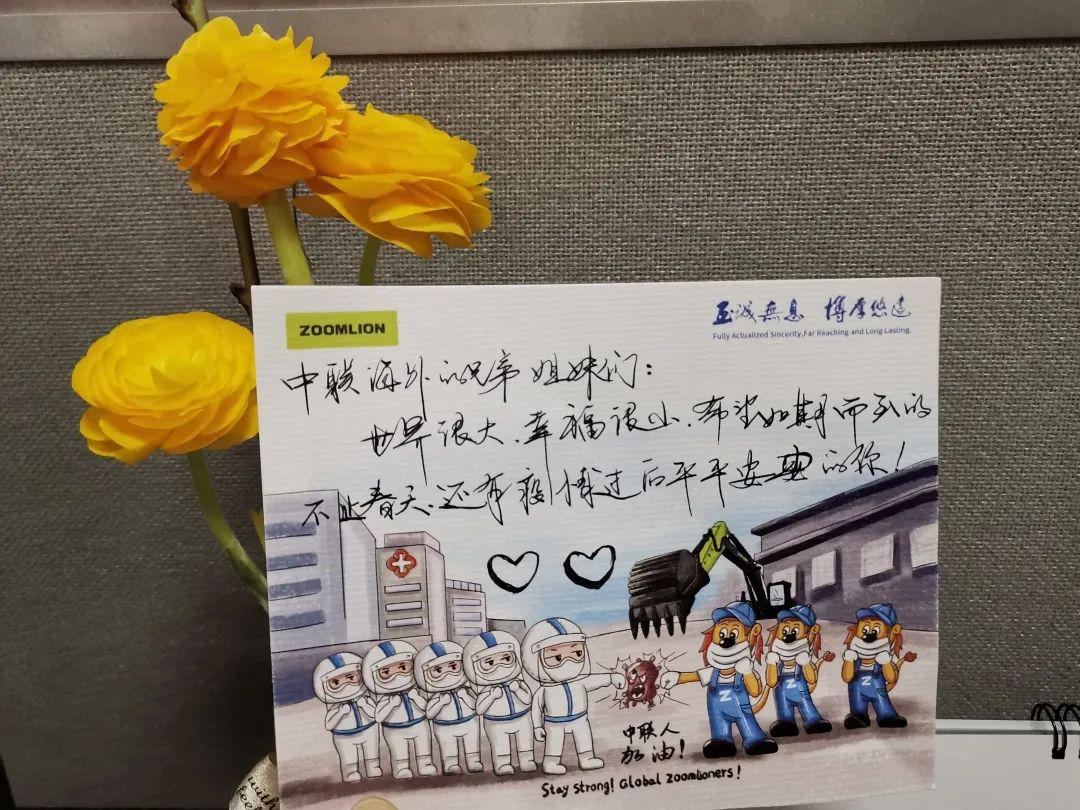 ZOOMLION
至诚无息 博厚悠远
Fully Actualized Sincerity,Far Reaching and Long Lasting.
中联海外的兄弟姐妹们：
世界很大、幸福很小、希望如期而至的
不止春天、还有疫情过后平平安安的你！
中联人
加油！
Stay Strong! Global Zoomlioners!
Z
Z
with